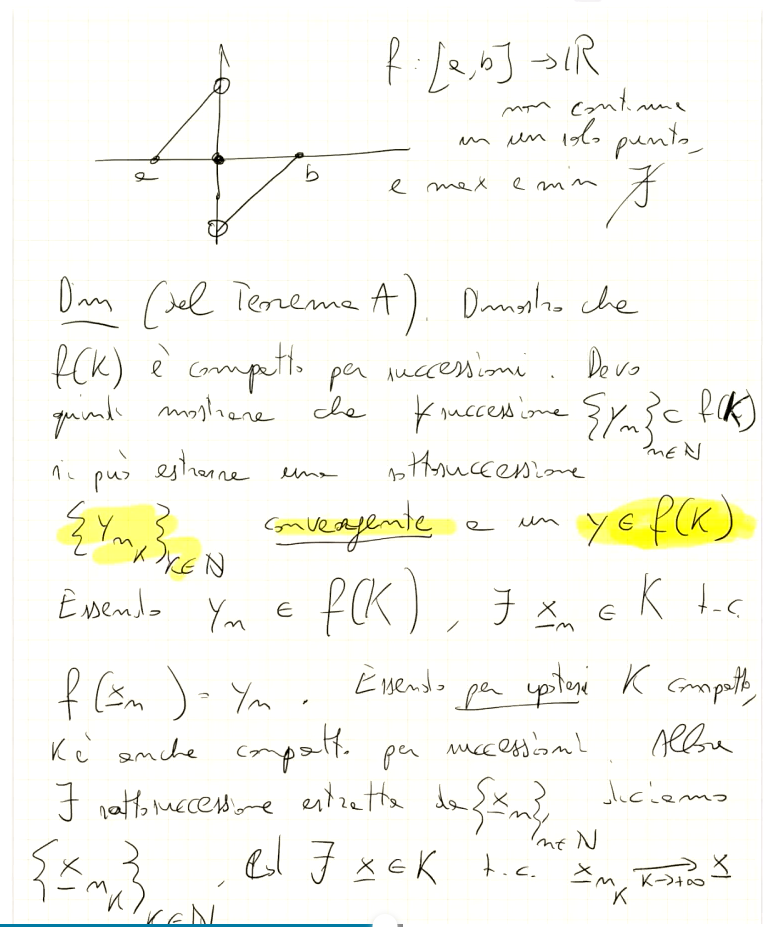 f : [a,b] → ℝ
non continua
in un solo punto,
e max e min ∄
a
b
Dim (del Teorema A). Dimostro che
f(K) è compatto per successioni. Devo
quindi mostrare che ∀ successione {y_n}_{n∈N} ⊂ f(K)
si può estrarre una sottosuccessione
{y_{n_K}}_{K∈N} convergente a un y ∈ f(K)
Essendo y_n ∈ f(K), ∃ x_n ∈ K t.c.
f(x_n) = y_n. Essendo per ipotesi K compatto,
K è anche compatto per successioni. Allora
∃ sottosuccessione estratta da {x_n}_{n∈N}, diciamo
{x_{n_K}}_{K∈N}, ed ∃ x ∈ K t.c. x_{n_K} →_{K→+∞} x